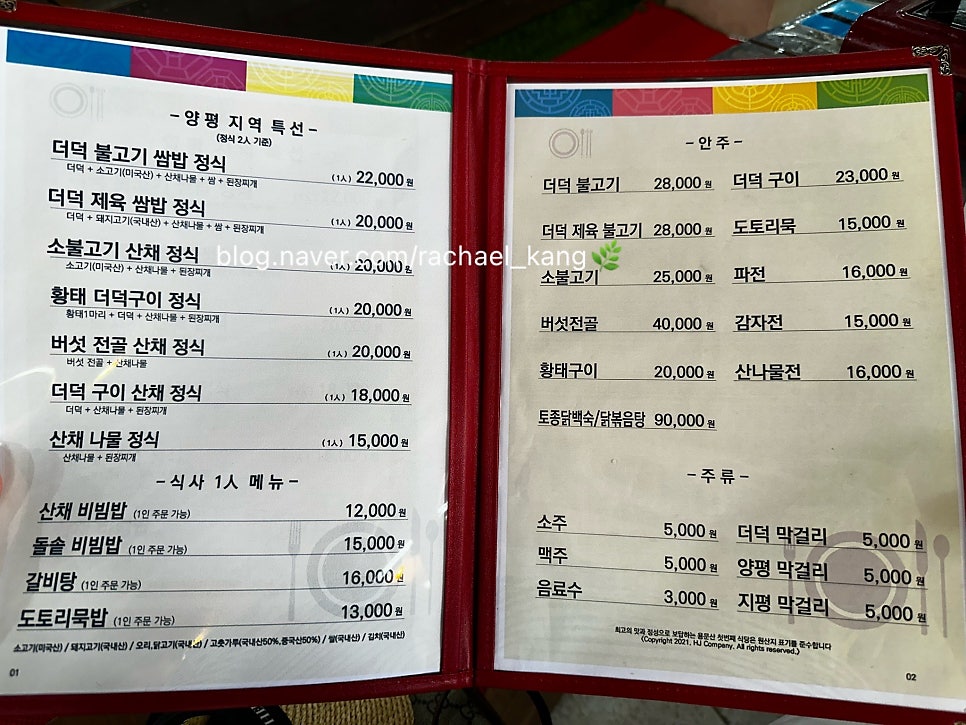 - 양평 지역 특선 -
(정식 2인 기준)
더덕 불고기 쌈밥 정식 (1人) 22,000원
더덕 + 소고기(미국산) + 산채나물 + 쌈 + 된장찌개
더덕 제육 쌈밥 정식 (1人) 20,000원
더덕 + 돼지고기(국내산) + 산채나물 + 쌈 + 된장찌개
소불고기 산채 정식 (1人) 20,000원
소고기(미국산) + 산채나물 + 된장찌개
황태 더덕구이 정식 (1人) 20,000원
황태1마리 + 더덕 + 산채나물 + 된장찌개
버섯 전골 산채 정식 (1人) 20,000원
버섯 전골 + 산채나물
더덕 구이 산채 정식 (1人) 18,000원
더덕 + 산채나물 + 된장찌개
산채 나물 정식 (1人) 15,000원
산채나물 + 된장찌개
- 식사 1人 메뉴 -
산채 비빔밥 (1인 주문 가능) 12,000원
돌솥 비빔밥 (1인 주문 가능) 15,000원
갈비탕 (1인 주문 가능) 16,000원
도토리묵밥 (1인 주문 가능) 13,000원
소고기(미국산) / 돼지고기(국내산) / 오리,닭고기(국내산) / 고춧가루(국내산50%,중국산50%) / 쌀(국내산) / 김치(국내산)
01
- 안주 -
더덕 불고기 28,000원 더덕 구이 23,000원
더덕 제육 불고기 28,000원 도토리묵 15,000원
소불고기 25,000원 파전 16,000원
버섯전골 40,000원 감자전 15,000원
황태구이 20,000원 산나물전 16,000원
토종닭백숙/닭볶음탕 90,000원
- 주류 -
소주 5,000원 더덕 막걸리 5,000원
맥주 5,000원 양평 막걸리 5,000원
음료수 3,000원 지평 막걸리 5,000원
최고의 맛과 정성으로 보답하는 용문산 첫번째 식당은 원산지 표기를 준수합니다
(Copyright 2021, HJ Company, All rights reserved.)
02
blog.naver.com/rachael_kang